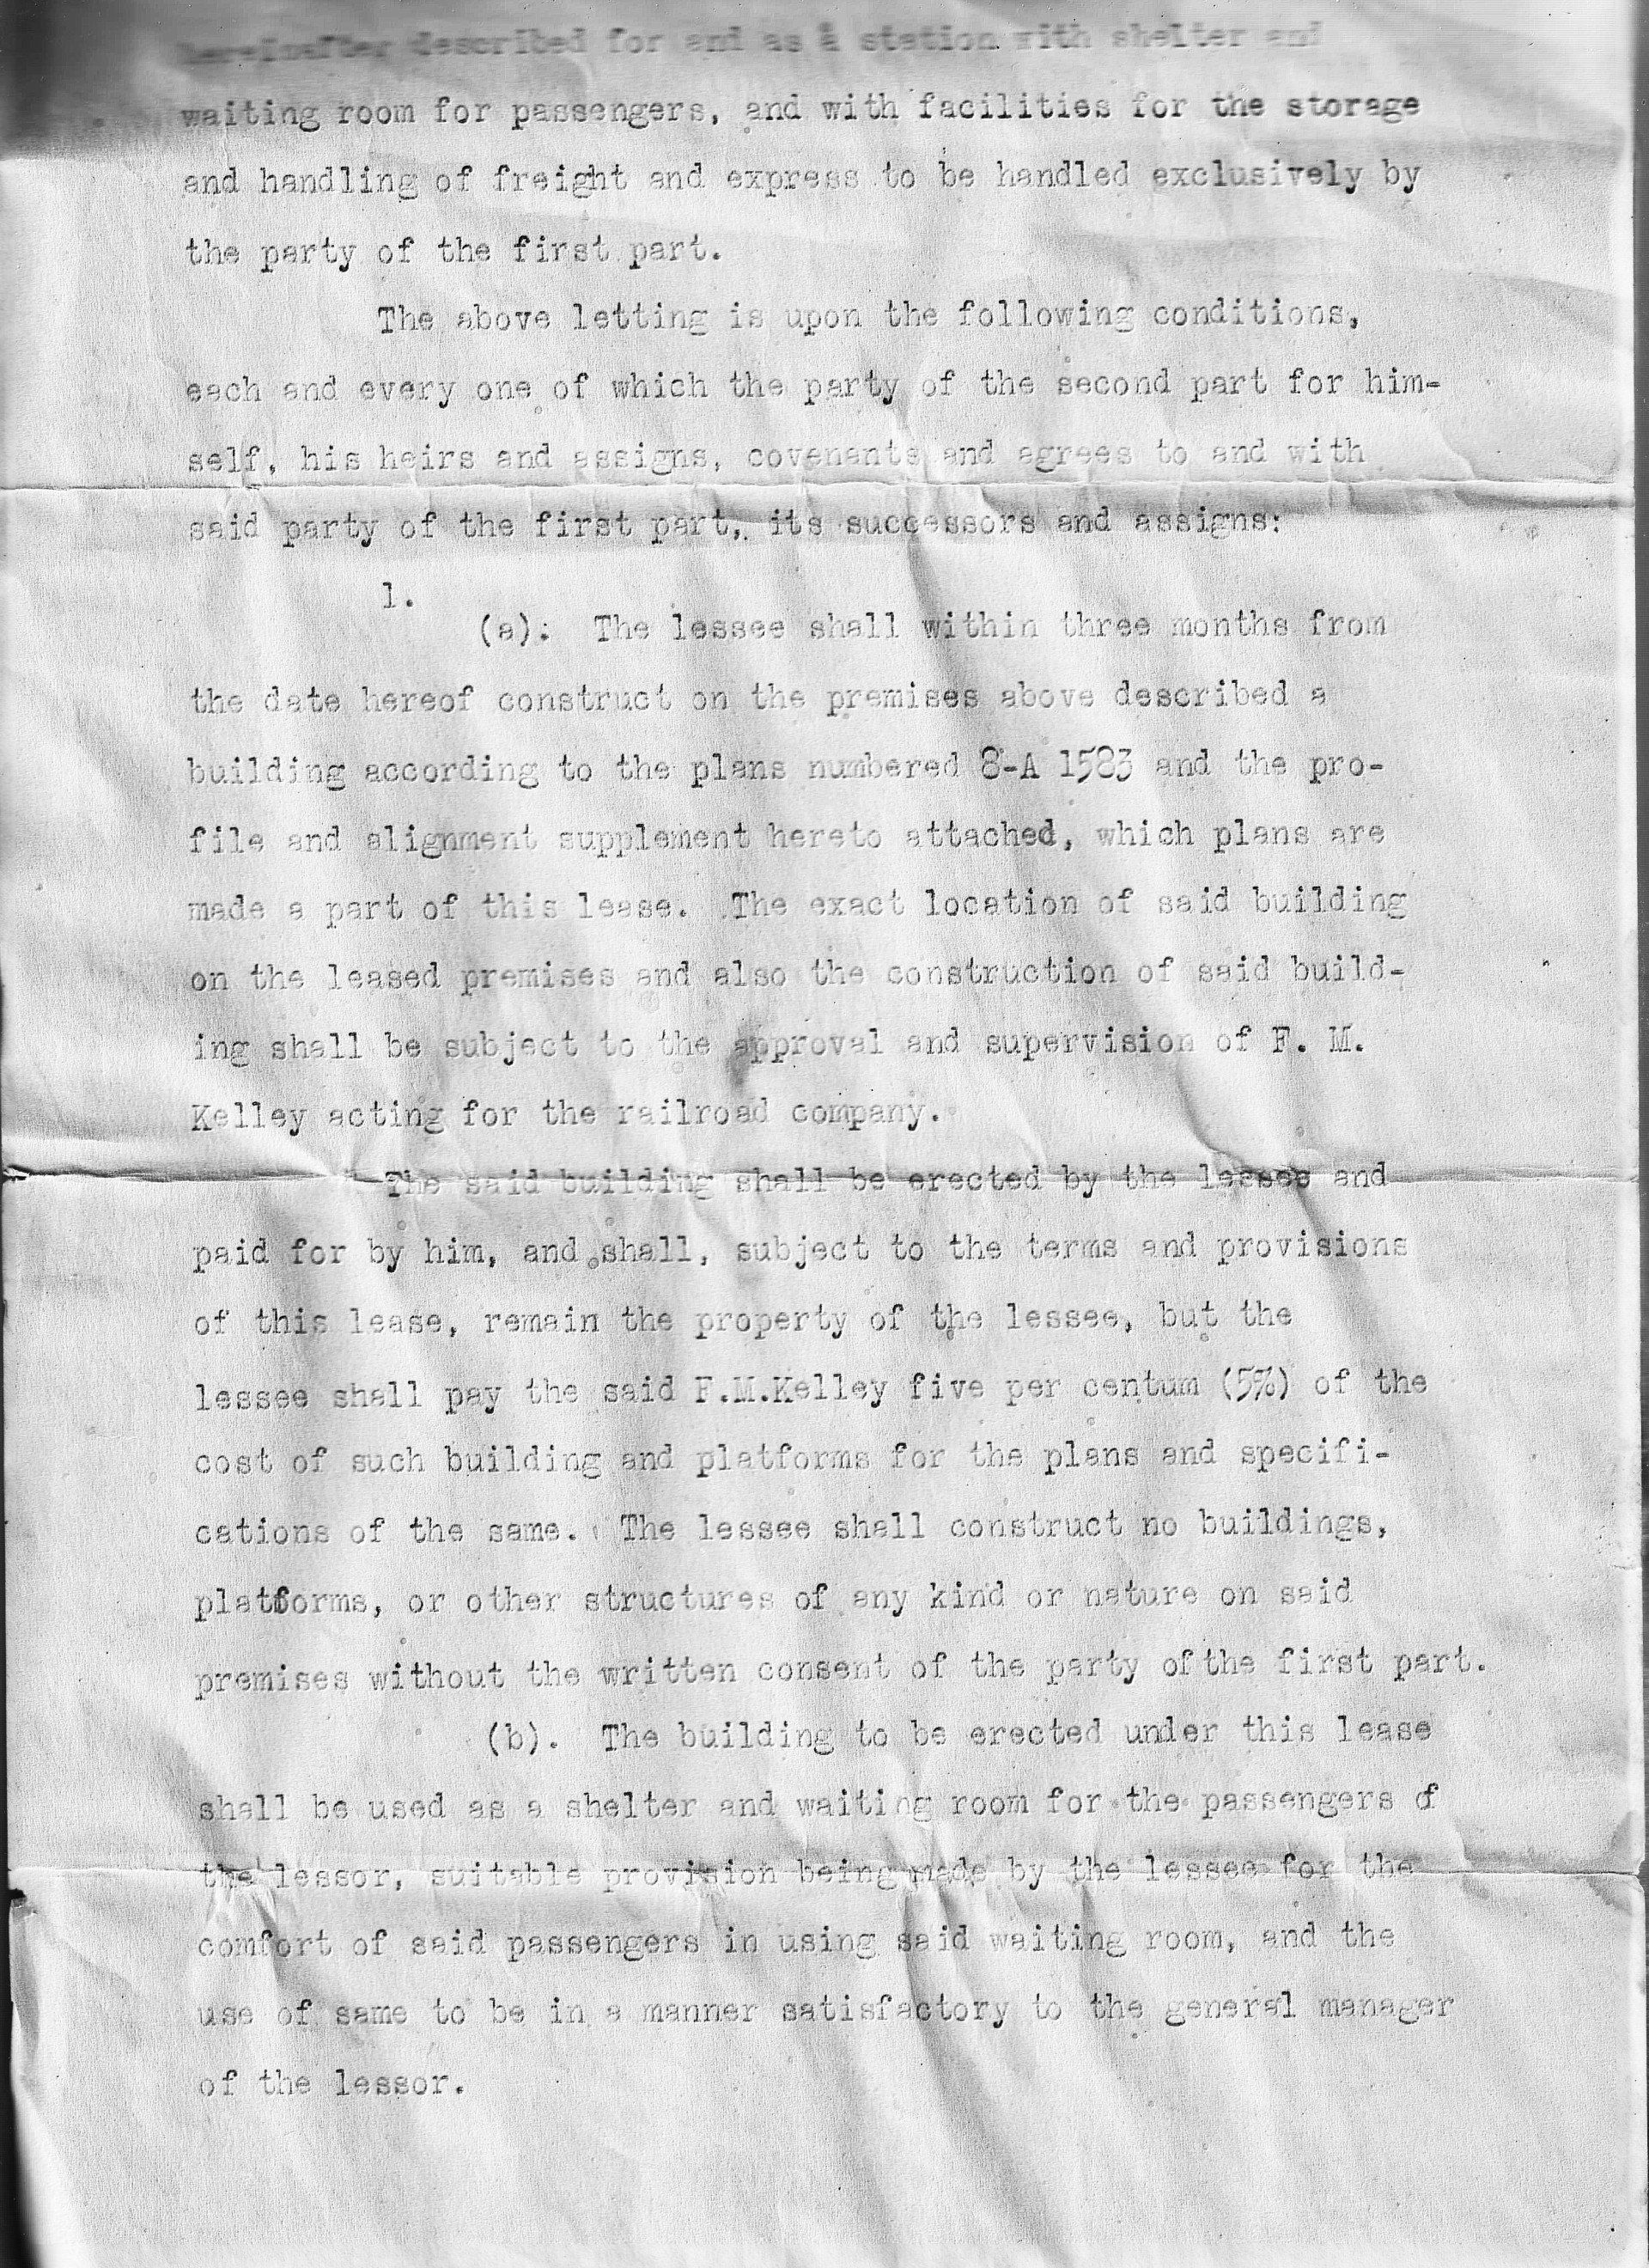 hereinafter described for and as a station with shelter and
waiting room for passengers, and with facilities for the storage
and handling of freight and express to be handled exclusively by
the party of the first part.
The above letting is upon the following conditions,
each and every one of which the party of the second part for him-
self, his heirs and assigns, covenants and agrees to and with
said party of the first part, its successors and assigns:
1.
(a). The lessee shall within three months from
the date hereof construct on the premises above described a
building according to the plans numbered 8-A 1583 and the pro-
file and alignment supplement hereto attached, which plans are
made a part of this lease. The exact location of said building
on the leased premises and also the construction of said build-
ing shall be subject to the approval and supervision of F. M.
Kelley acting for the railroad company.
The said building shall be erected by the lessee and
paid for by him, and shall, subject to the terms and provisions
of this lease, remain the property of the lessee, but the
lessee shall pay the said F.M.Kelley five per centum (5%) of the
cost of such building and platforms for the plans and specifi-
cations of the same. The lessee shall construct no buildings,
platforms, or other structures of any kind or nature on said
premises without the written consent of the party of the first part.
(b). The building to be erected under this lease
shall be used as a shelter and waiting room for the passengers of
the lessor, suitable provision being made by the lessee for the
comfort of said passengers in using said waiting room, and the
use of same to be in a manner satisfactory to the general manager
of the lessor.